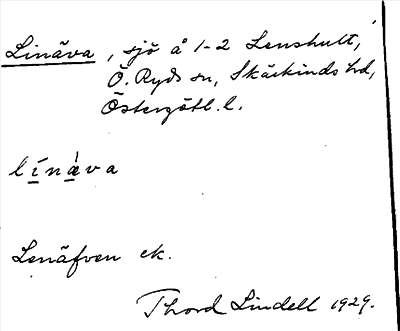 Linäva, sjö å 1-2 Lenshult,
Ö. Ryds sn, Skärkinds hd,
Östergötl. l.
línàva
Lenäfven ek.
Thord Lindell 1929.